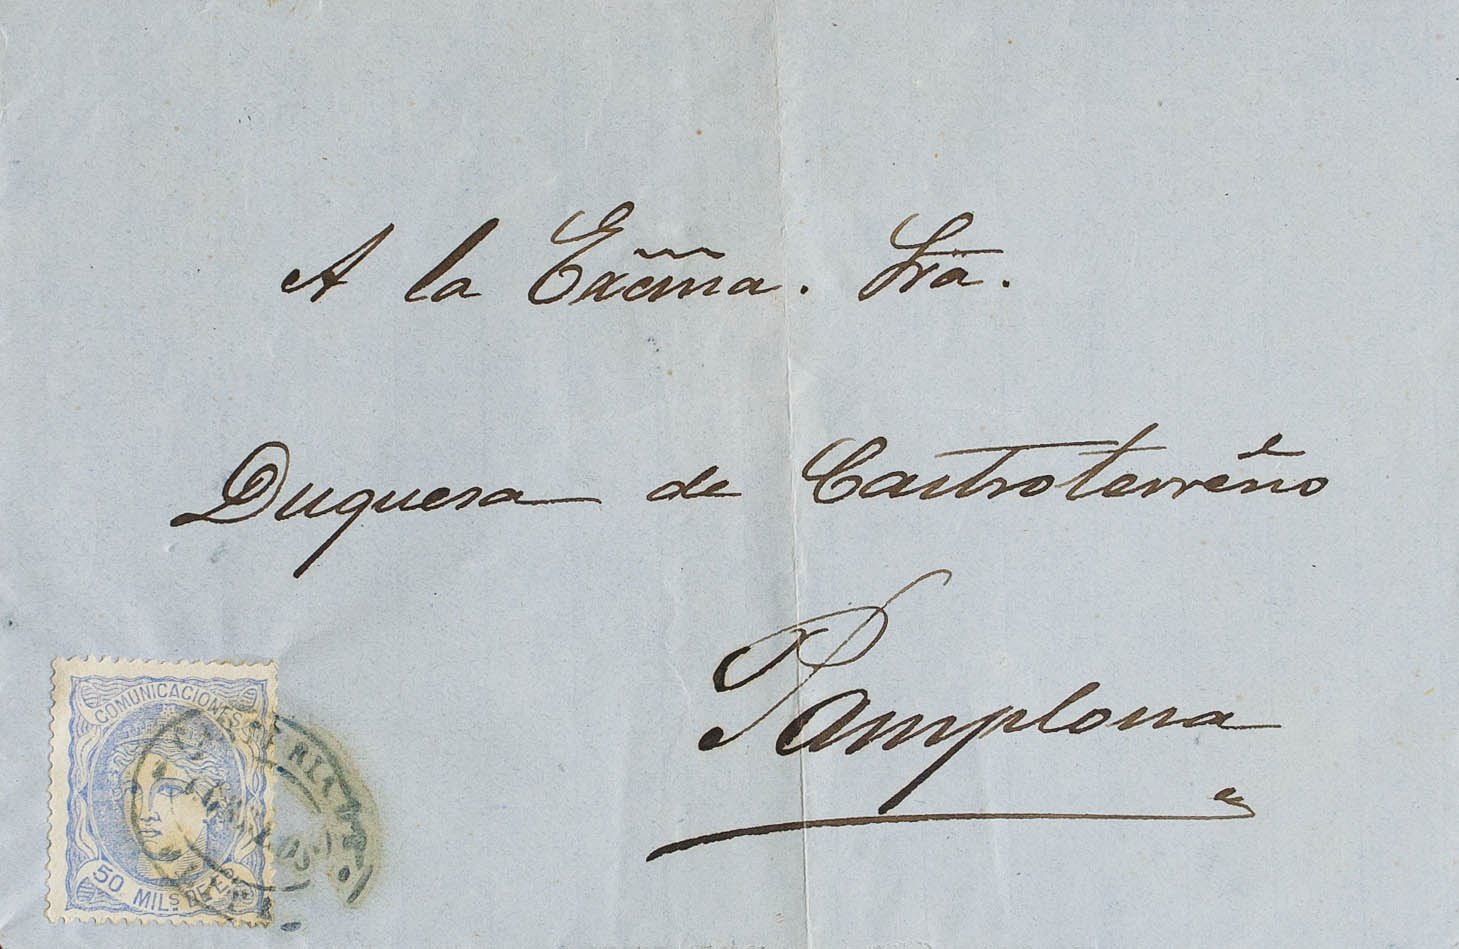 A la Excma. Sra.
Duquesa de Castroterreño
Pamplona
COMUNICACIONES
50 MILS DE E